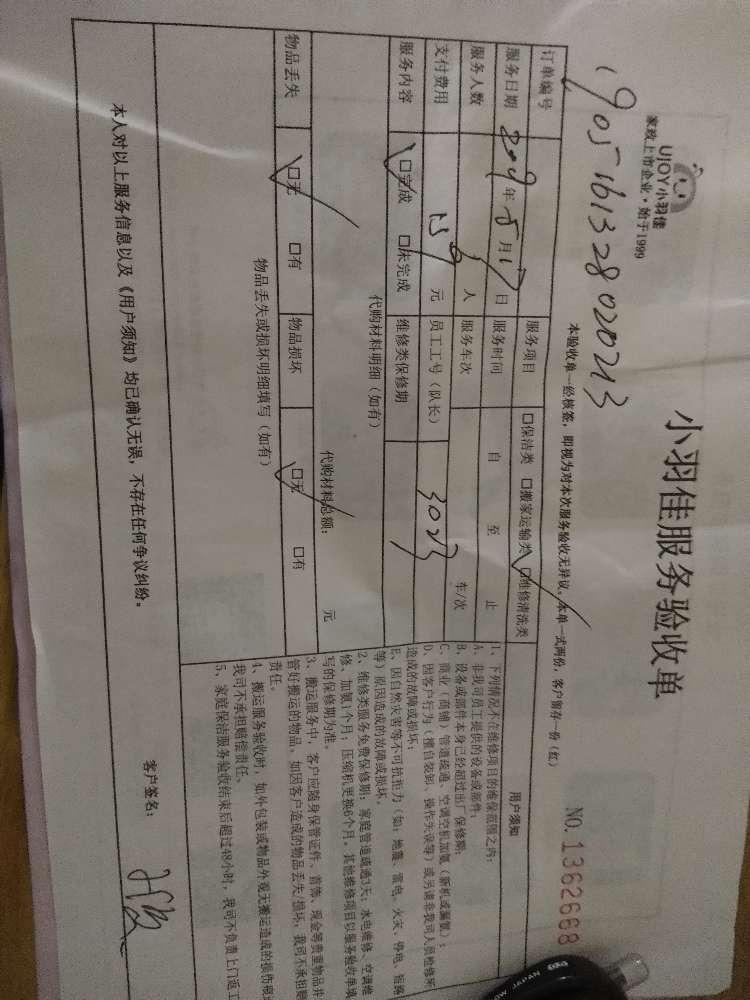 UJOY小羽佳
家政上市企业·始于1999
小羽佳服务验收单
NO.1362668
190516132802 0213
本验收单一经核签，即视为对本次服务验收无异议。本单一式两份，客户留存一份（红）
订单编号
服务项目 □保洁类 □搬家运输类 □维修清洗类
服务日期 2019年5月17日 服务时间 自 至 止
服务人数 人 服务车次 车/次
支付费用 元 员工工号（队长） 3023
服务内容 □完成 □未完成 维修类保修期
代购材料明细（如有）
代购材料总额： 元
物品丢失 □无 □有 物品损坏 □无 □有
物品丢失或损坏明细填写（如有）
用户须知
1、下列情况不在维修项目的维保范围之内：
A、非我司员工提供的设备或部件；
B、设备或部件本身已经超过出厂保修期；
C、商业（商铺）管道疏通、空调空机加氨（新机或漏氨）；
D、因客户行为（擅自装卸、操作失误等）或另请非我司人员检修所
造成的故障或损坏；
E、因自然灾害等不可抗拒力（如：地震、雷电、火灾、停电、短路
等）原因造成的故障或损坏。
2、维修类服务免费保修期：家庭管道疏通3天；水电维修、空调维
修、加氨1个月；压缩机更换6个月，其他维修项目以服务验收单填
写的保修期为准。
3、搬运服务中，客户应随身保管证件、首饰、现金等贵重物品并
管好搬运的物品，如因客户造成的物品丢失损坏，我司不承担赔
责任。
4、搬运服务验收时，如外包装或物品外观无搬运造成的损伤痕迹
我司不承担赔偿责任。
5、家庭保洁服务验收结束后超过48小时，我司不负责上门返工
本人对以上服务信息以及《用户须知》均已确认无误，不存在任何争议纠纷。
客户签名：